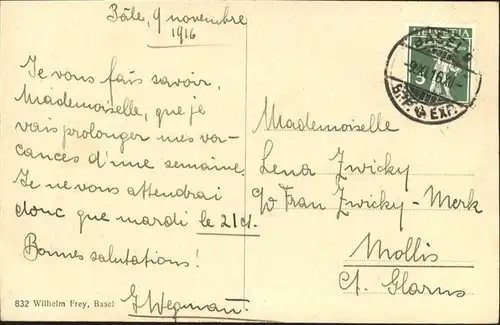 Bâle, 9 novembre
1916
Je vous fais savoir,
Mademoiselle, que je
vais prolonger mes va-
cances d'une semaine.
Je ne vous attendrai
donc que mardi le 21 ct.
Bonnes salutations!
J. Wegmann.
832 Wilhelm Frey, Basel
HELVETIA
5
BASEL 6
9.XI.16.XI-
BRF. EXP.
Mademoiselle
Lena Zwicky
c/o Frau Zwicky-Merk
Mollis
Ct. Glarus